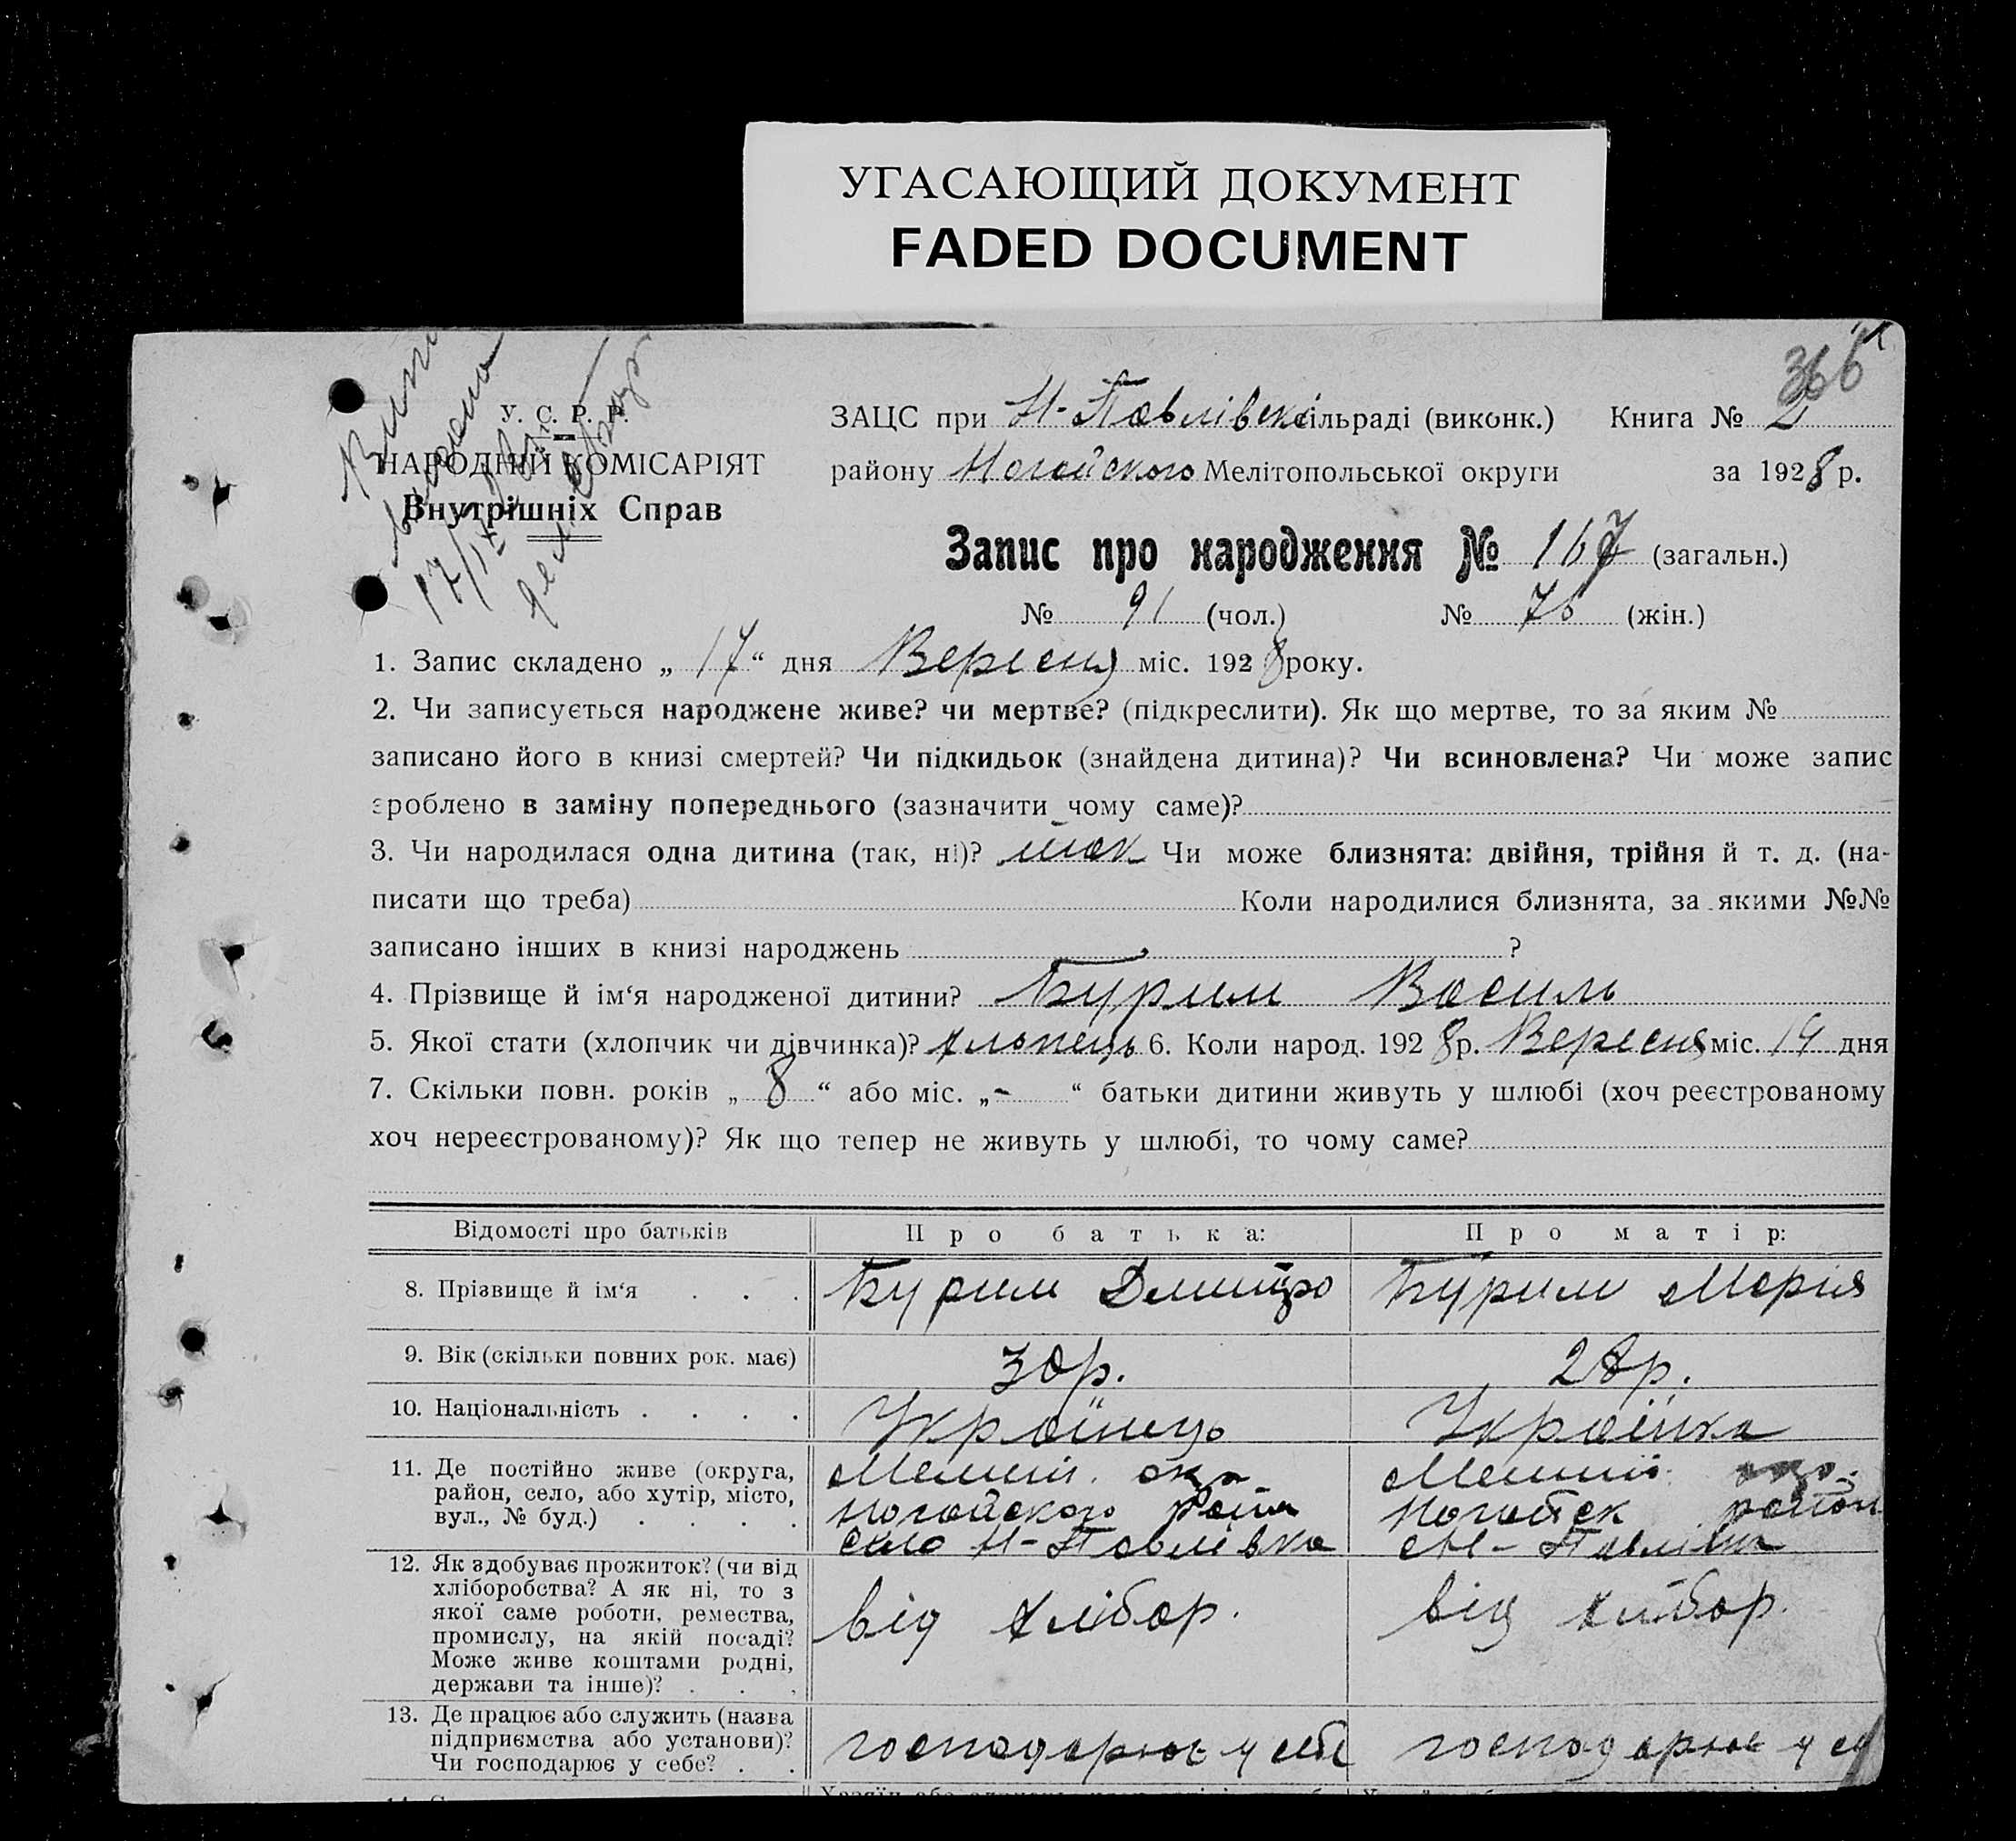 УГАСАЮЩИЙ ДОКУМЕНТ
FADED DOCUMENT
366
У. С. Р. Р.
НАРОДНІЙ КОМІСАРІЯТ
Внутрішніх Справ
17/IX
ЗАЦС при Н-Павлівск сільраді (виконк.) Книга № 2
району Ногайского Мелітопольської округи за 1928 р.
Запис про народження № 167 (загальн.)
№ 91 (чол.) № 76 (жін.)
1. Запис складено „ 17 “ дня Вересня міс. 1928 року.
2. Чи записується народжене живе? чи мертве? (підкреслити). Як що мертве, то за яким №
записано його в книзі смертей? Чи підкидьок (знайдена дитина)? Чи всиновлена? Чи може запис
зроблено в заміну попереднього (зазначити чому саме)?
3. Чи народилася одна дитина (так, ні)? так Чи може близнята: двійня, трійня й т. д. (на-
писати що треба) Коли народилися близнята, за якими №№
записано інших в книзі народжень ?
4. Прізвище й ім‘я народженої дитини? Бурим Василь
5. Якої стати (хлопчик чи дівчинка)? хлопець 6. Коли народ. 1928 р. Вересня міс. 14 дня
7. Скільки повн. років „ 8 “ або міс. „ - “ батьки дитини живуть у шлюбі (хоч реєстрованому
хоч нереєстрованому)? Як що тепер не живуть у шлюбі, то чому саме?
Відомості про батьків Про батька: Про матір:
8. Прізвище й ім‘я . . . Бурим Дмитро Бурим Марія
9. Вік (скільки повних рок. має) 30р. 28р.
10. Національність . . . . Українець Українка
11. Де постійно живе (округа,
район, село, або хутір, місто,
вул., № буд.) . . . .
Меліт. окр
Ногайского район
село Н-Павлівка
Меліт. окр.
Ногайск район
с Н-Павлівка
12. Як здобуває прожиток? (чи від
хліборобства? А як ні, то з
якої саме роботи, ремества,
промислу, на якій посаді?
Може живе коштами родні,
держави та інше)? . . .
від хлібор.
від хлібор.
13. Де працює або служить (назва
підприємства або установи)?
Чи господарює у себе? . .
господарює у себе
господарює у се